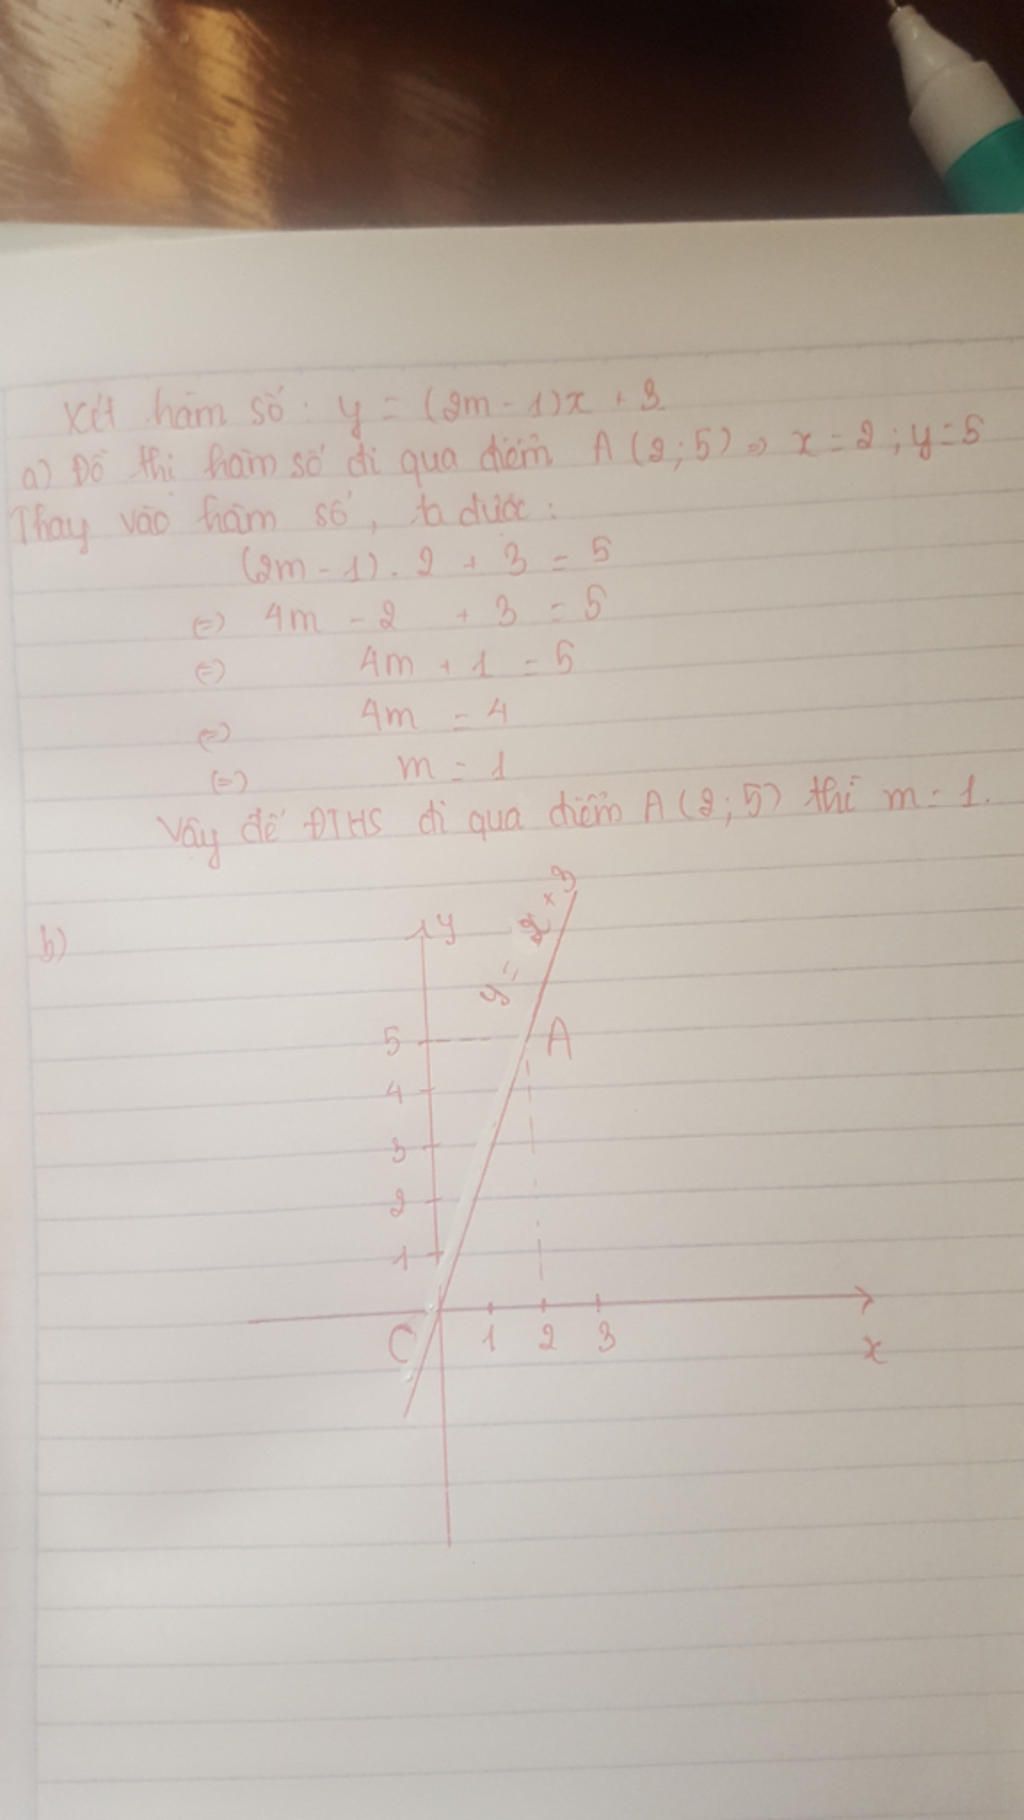 Xét hàm số: y = (2m - 1)x + 3
a) Đồ thị hàm số đi qua điểm A (2; 5) => x = 2; y = 5
Thay vào hàm số, ta được:
(2m - 1) . 2 + 3 = 5
(=) 4m - 2 + 3 = 5
(=) 4m + 1 = 5
(=) 4m = 4
(=) m = 1
Vậy để ĐTHS đi qua điểm A (2; 5) thì m = 1.
b)
y
5
A
4
3
2
1
1 2 3
x